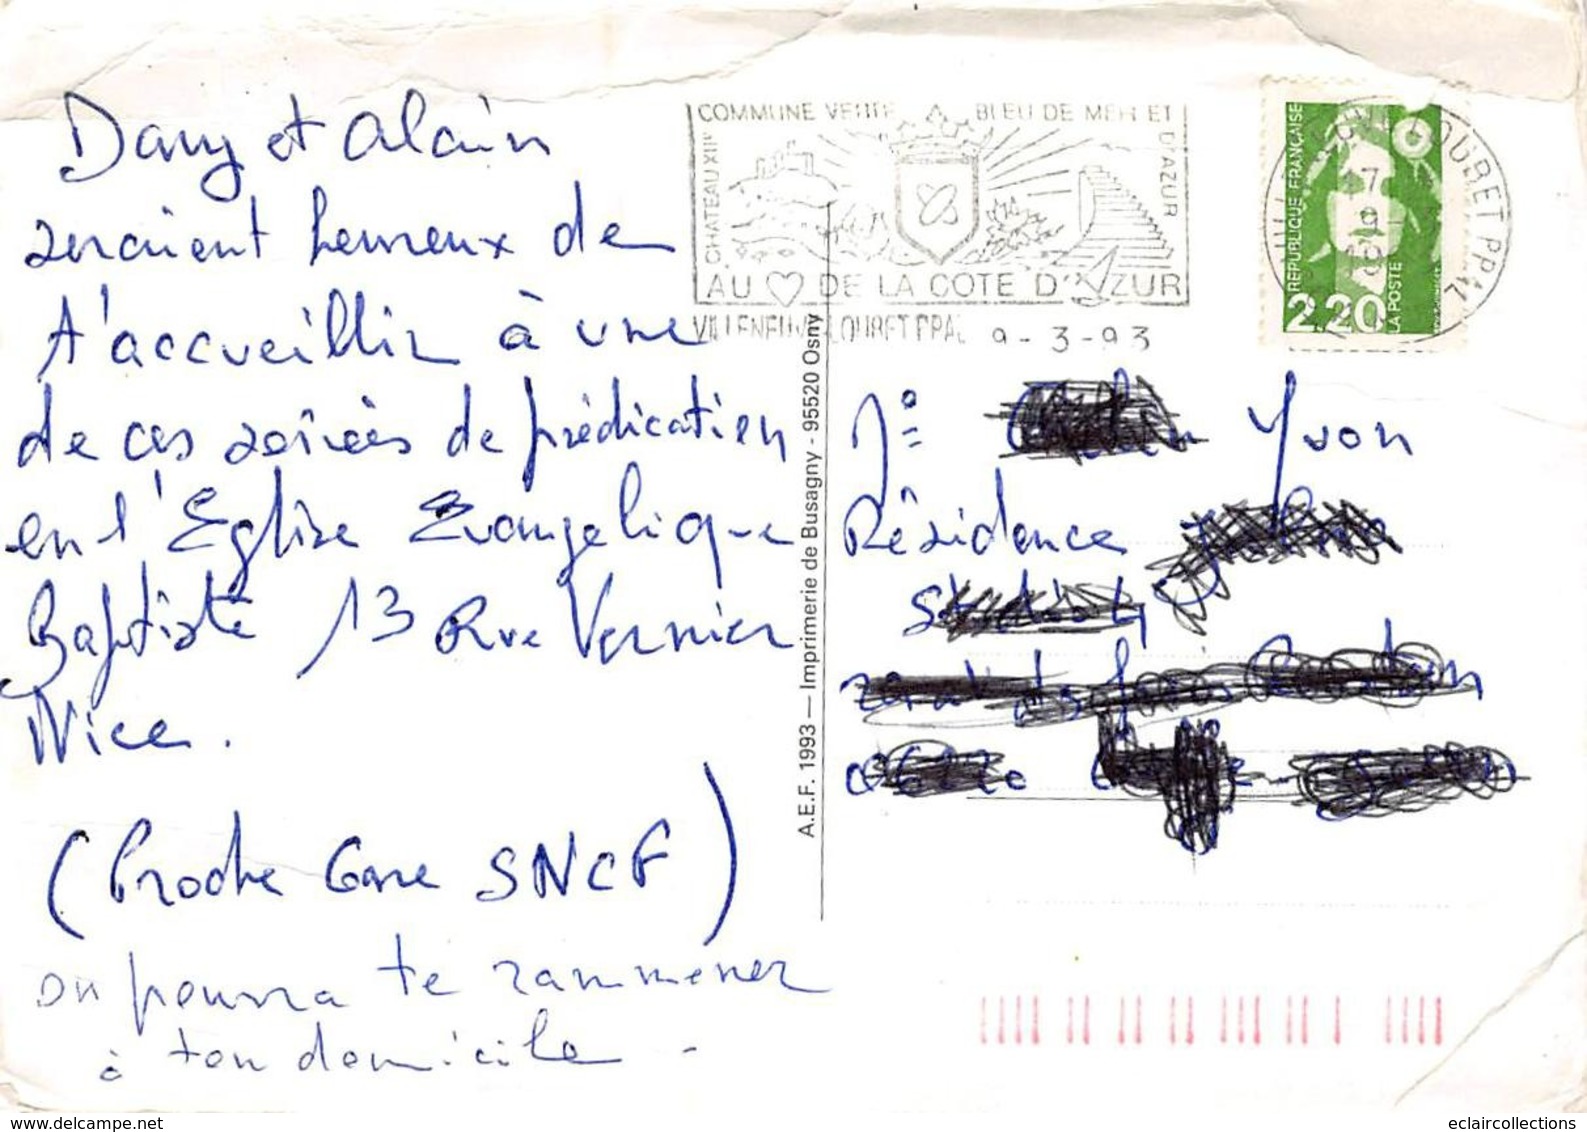 Dany et Alain
seraient heureux de
t'accueillir à une
de ces soirées de prédication
en l'Eglise Evangelique
Baptiste 13 Rue Vernier
Nice.
(Proche Gare SNCF)
on pourra te rammener
à ton domicile -
COMMUNE VERTE BLEU DE MER ET
CHATEAU XIIe
D'AZUR
AU DE LA COTE D'AZUR
VILLENEUVE-LOUBET PPAL 9-3-93
REPUBLIQUE FRANÇAISE
2,20
LA POSTE
LOUBET PPAL
A.E.F. 1993 — Imprimerie de Busagny - 95520 Osny
Yvon
Résidence
delcampe.net
eclaircollections